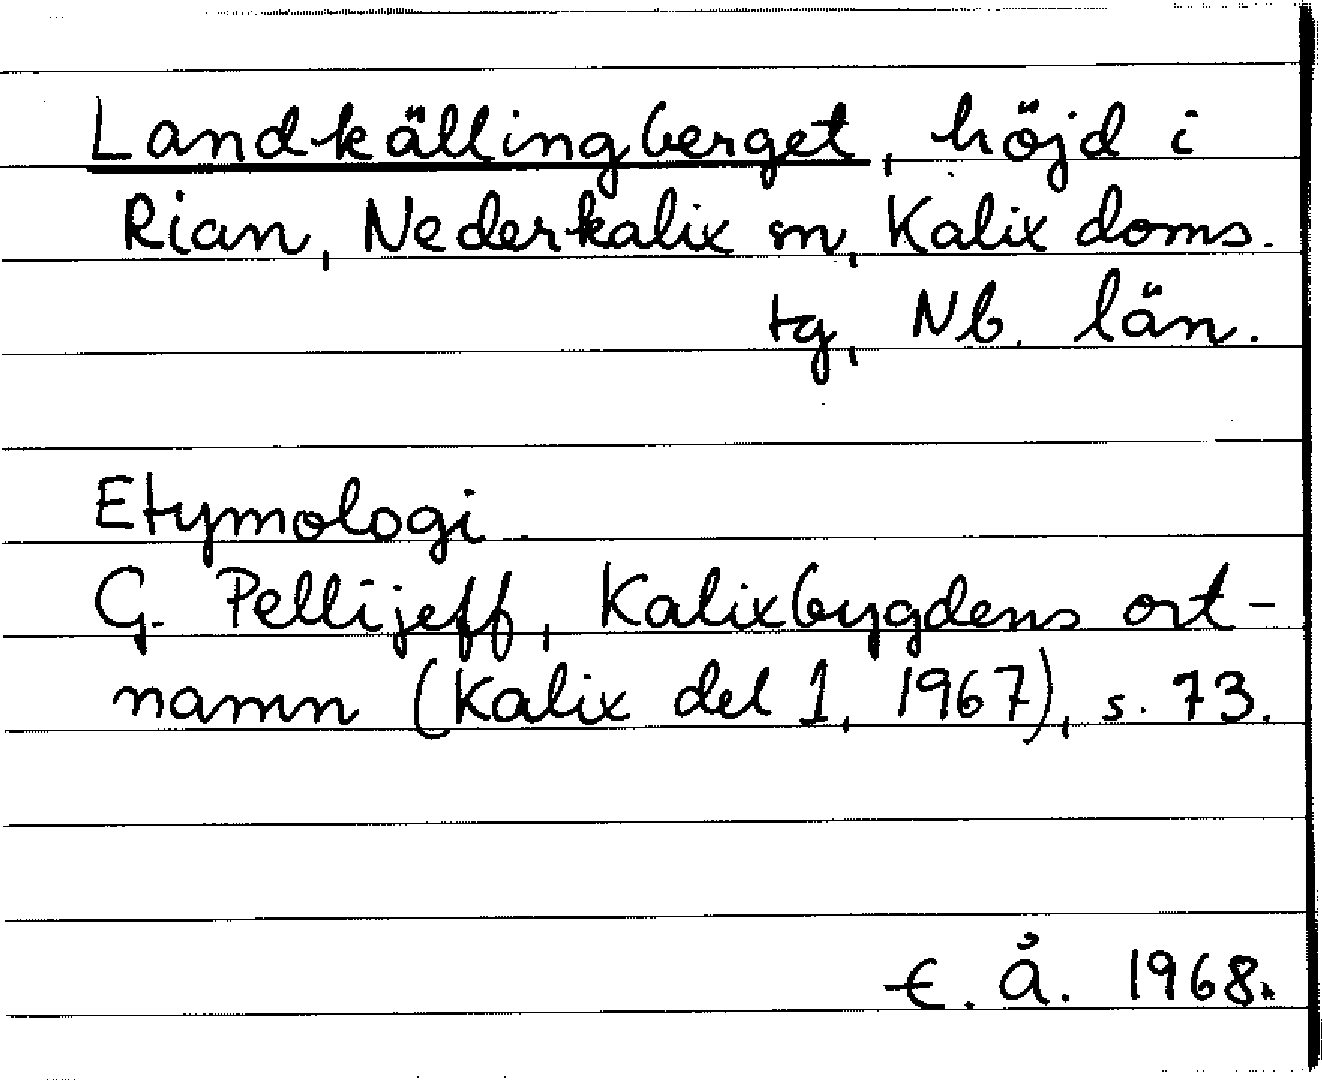 Landkällingberget, höjd i
Rian, Nederkalix sn, Kalix doms.
tg, Nb. län.
Etymologi.
G. Pellijeff, Kalixbygdens ort-
namn (Kalix del 1, 1967), s. 73.
E. Å. 1968.